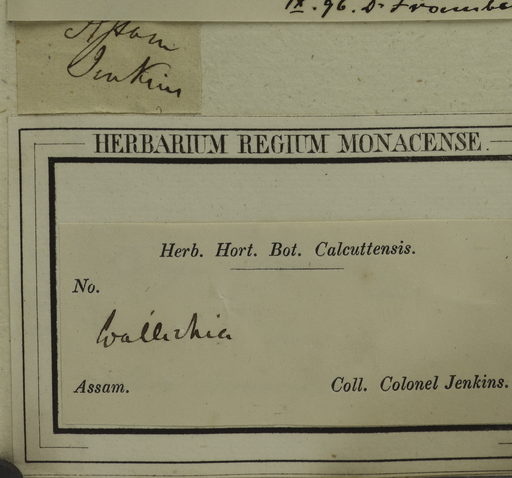 IX. 96. Dr
Assam
Jenkins
HERBARIUM REGIUM MONACENSE.
Herb. Hort. Bot. Calcuttensis.
No.
Wallichia
Assam. Coll. Colonel Jenkins.